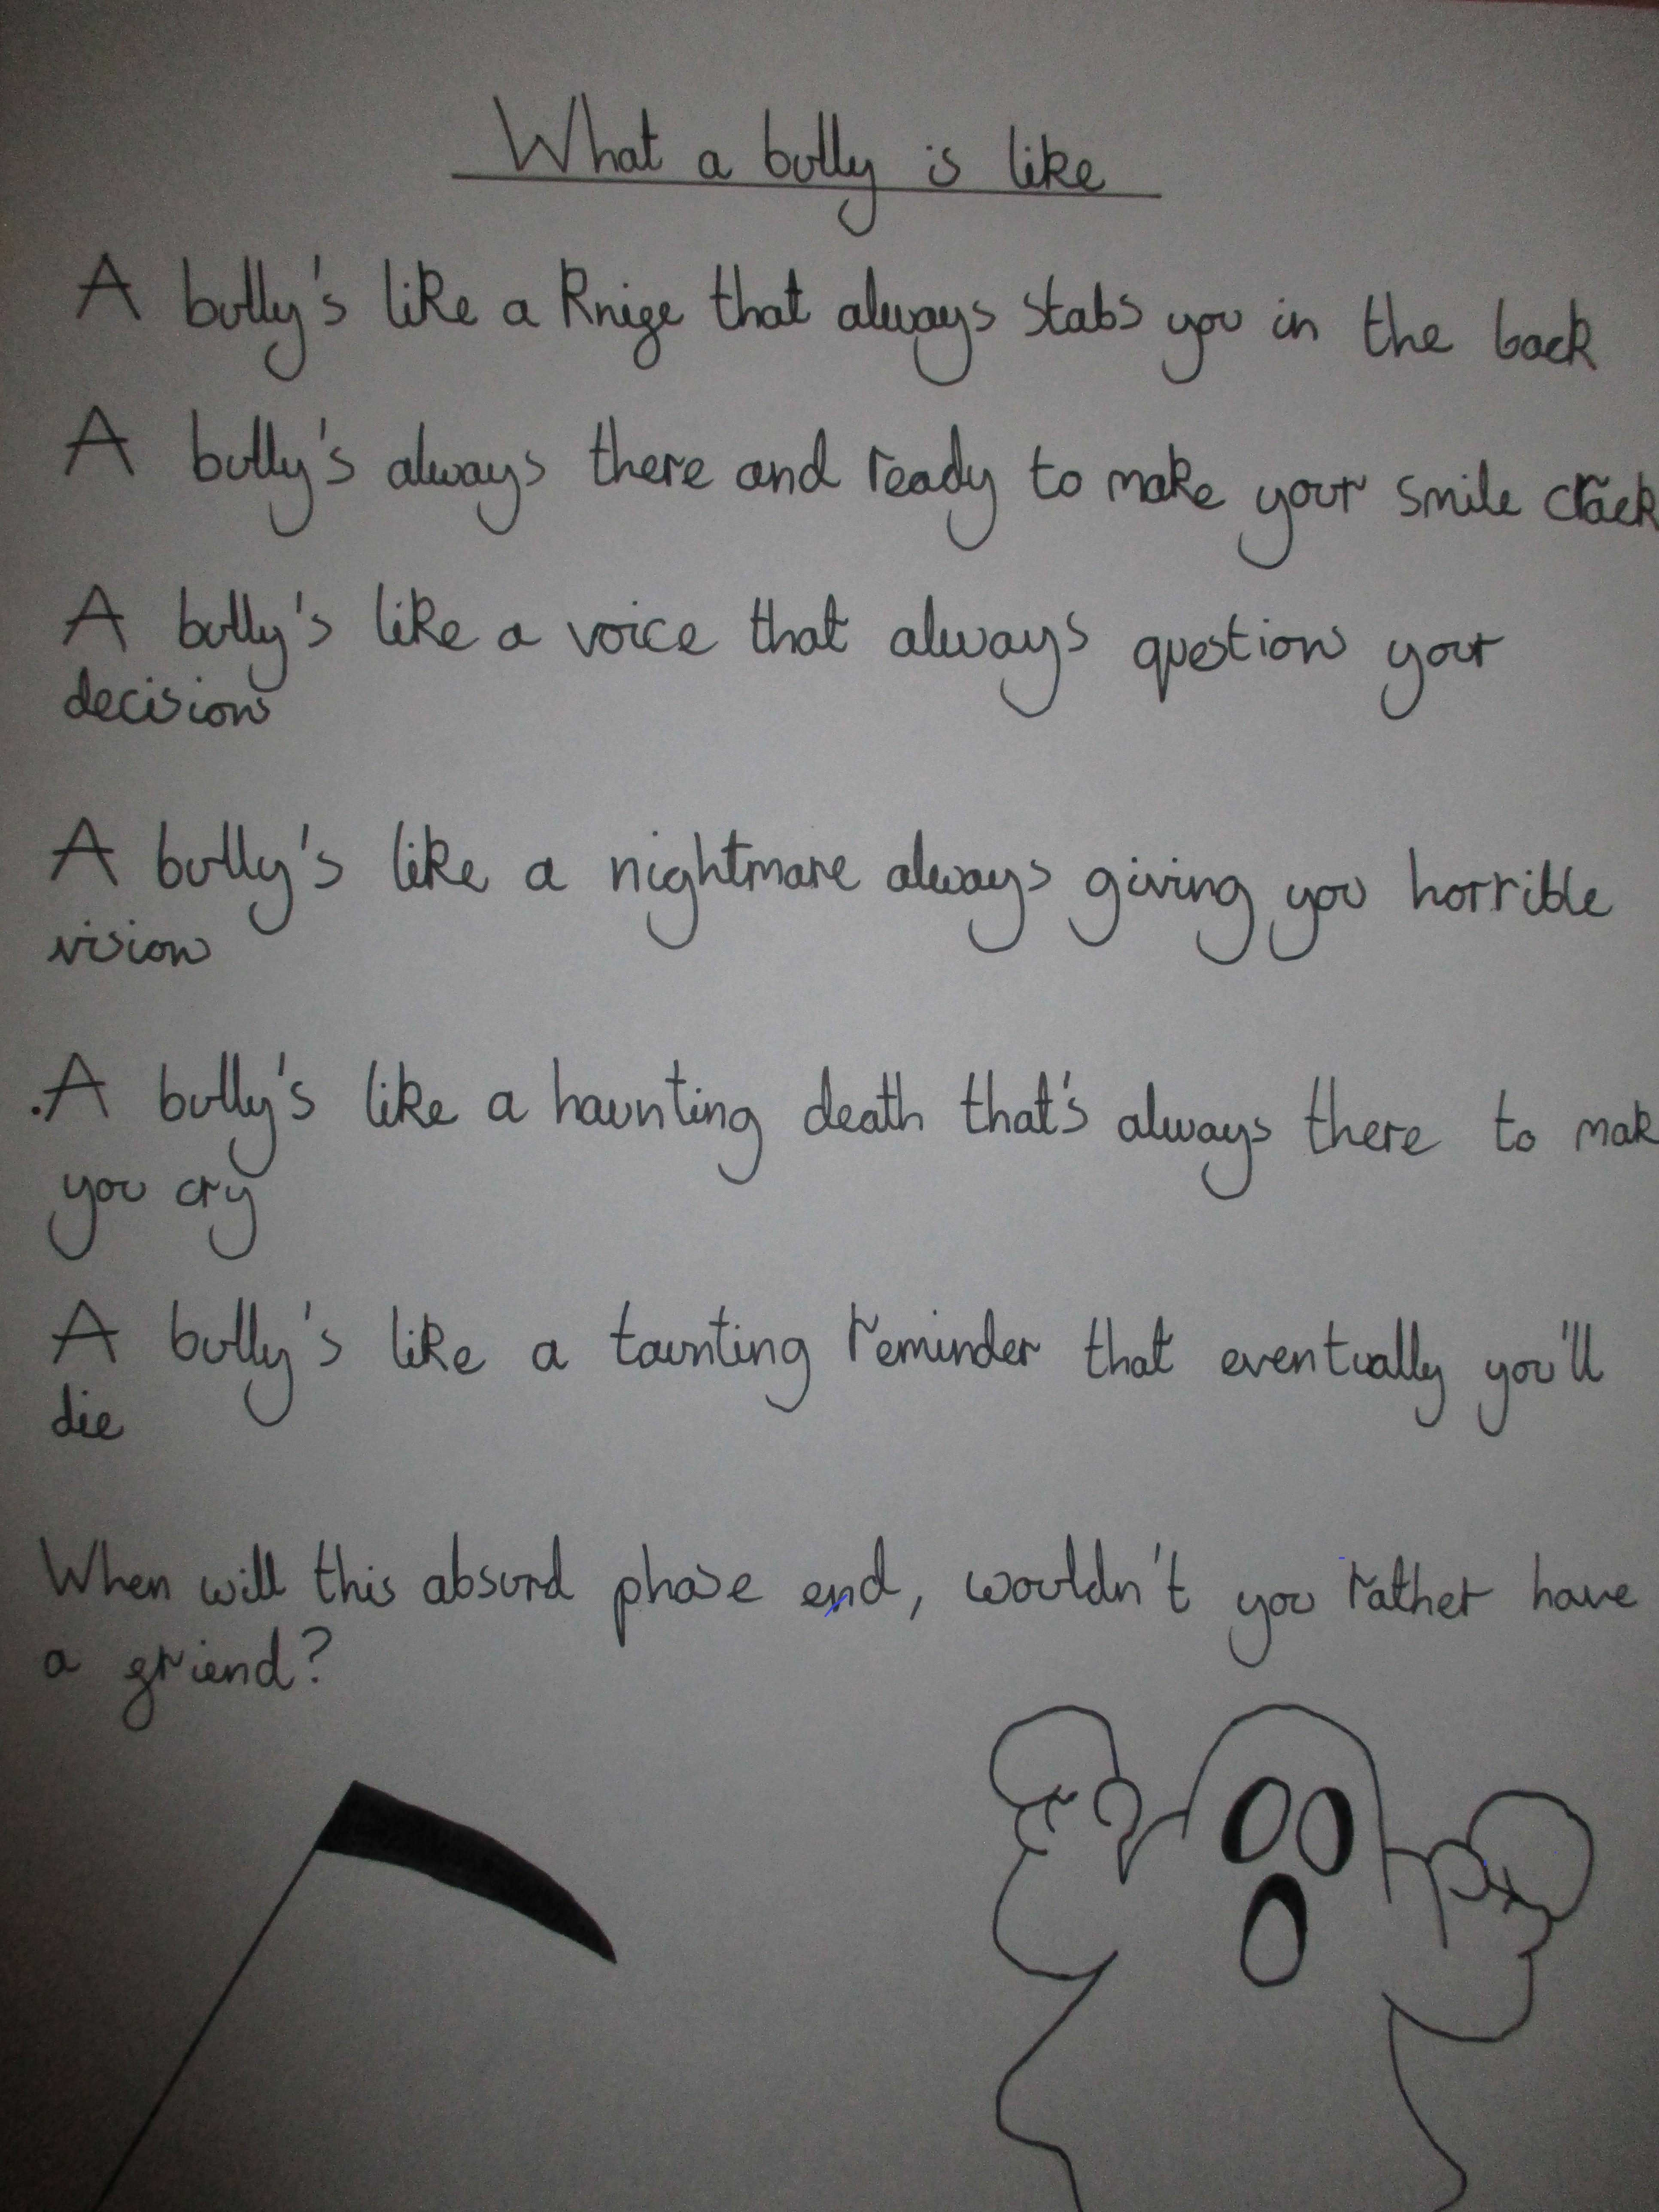 What a bully is like
A bully's like a knife that always stabs you in the back
A bully's always there and ready to make your smile crack
A bully's like a voice that always questions your
decisions
A bully's like a nightmare always giving you horrible
visions
A bully's like a haunting death that's always there to mak
you cry
A bully's like a taunting reminder that eventually you'll
die
When will this absurd phase end, wouldn't you rather have
a friend?